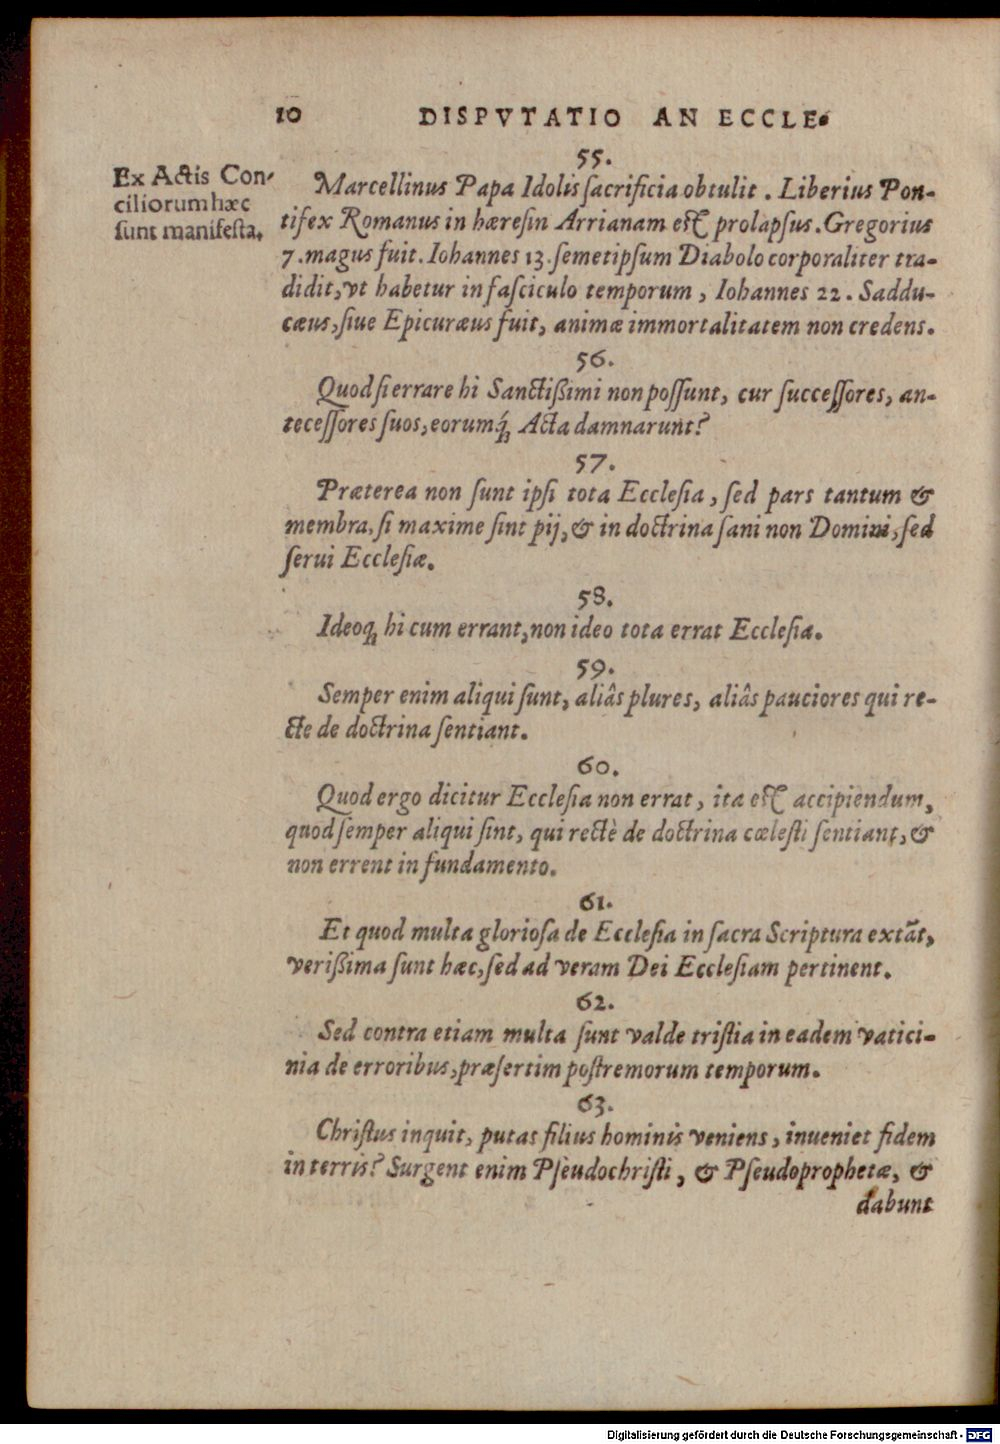 10 DISPVTATIO AN ECCLE-
Ex Actis Con-
ciliorum hæc
sunt manifesta.
55.
Marcellinus Papa Idolis sacrificia obtulit. Liberius Pon-
tifex Romanus in hæresin Arrianam est prolapsus. Gregorius
7. magus fuit. Iohannes 13. semetipsum Diabolo corporaliter tra-
didit, vt habetur in fasciculo temporum, Iohannes 22. Saddu-
cæus, siue Epicuræus fuit, animæ immortalitatem non credens.
56.
Quod si errare hi Sanctißimi non possunt, cur successores, an-
tecessores suos, eorumq́; Acta damnarunt?
57.
Præterea non sunt ipsi tota Ecclesia, sed pars tantum &
membra, si maxime sint pij, & in doctrina sani non Domini, sed
serui Ecclesiæ.
58.
Ideoq; hi cum errant, non ideo tota errat Ecclesia.
59.
Semper enim aliqui sunt, aliâs plures, aliâs pauciores qui re-
cte de doctrina sentiant.
60.
Quod ergo dicitur Ecclesia non errat, ita est accipiendum,
quod semper aliqui sint, qui rectè de doctrina cœlesti sentiant, &
non errent in fundamento.
61.
Et quod multa gloriosa de Ecclesia in sacra Scriptura extāt,
verißima sunt hæc, sed ad veram Dei Ecclesiam pertinent.
62.
Sed contra etiam multa sunt valde tristia in eadem vatici-
nia de erroribus, præsertim postremorum temporum.
63.
Christus inquit, putas filius hominis veniens, inueniet fidem
in terris? Surgent enim Pseudochristi, & Pseudoprophetæ, &
dabunt
Digitalisierung gefördert durch die Deutsche Forschungsgemeinschaft - DFG